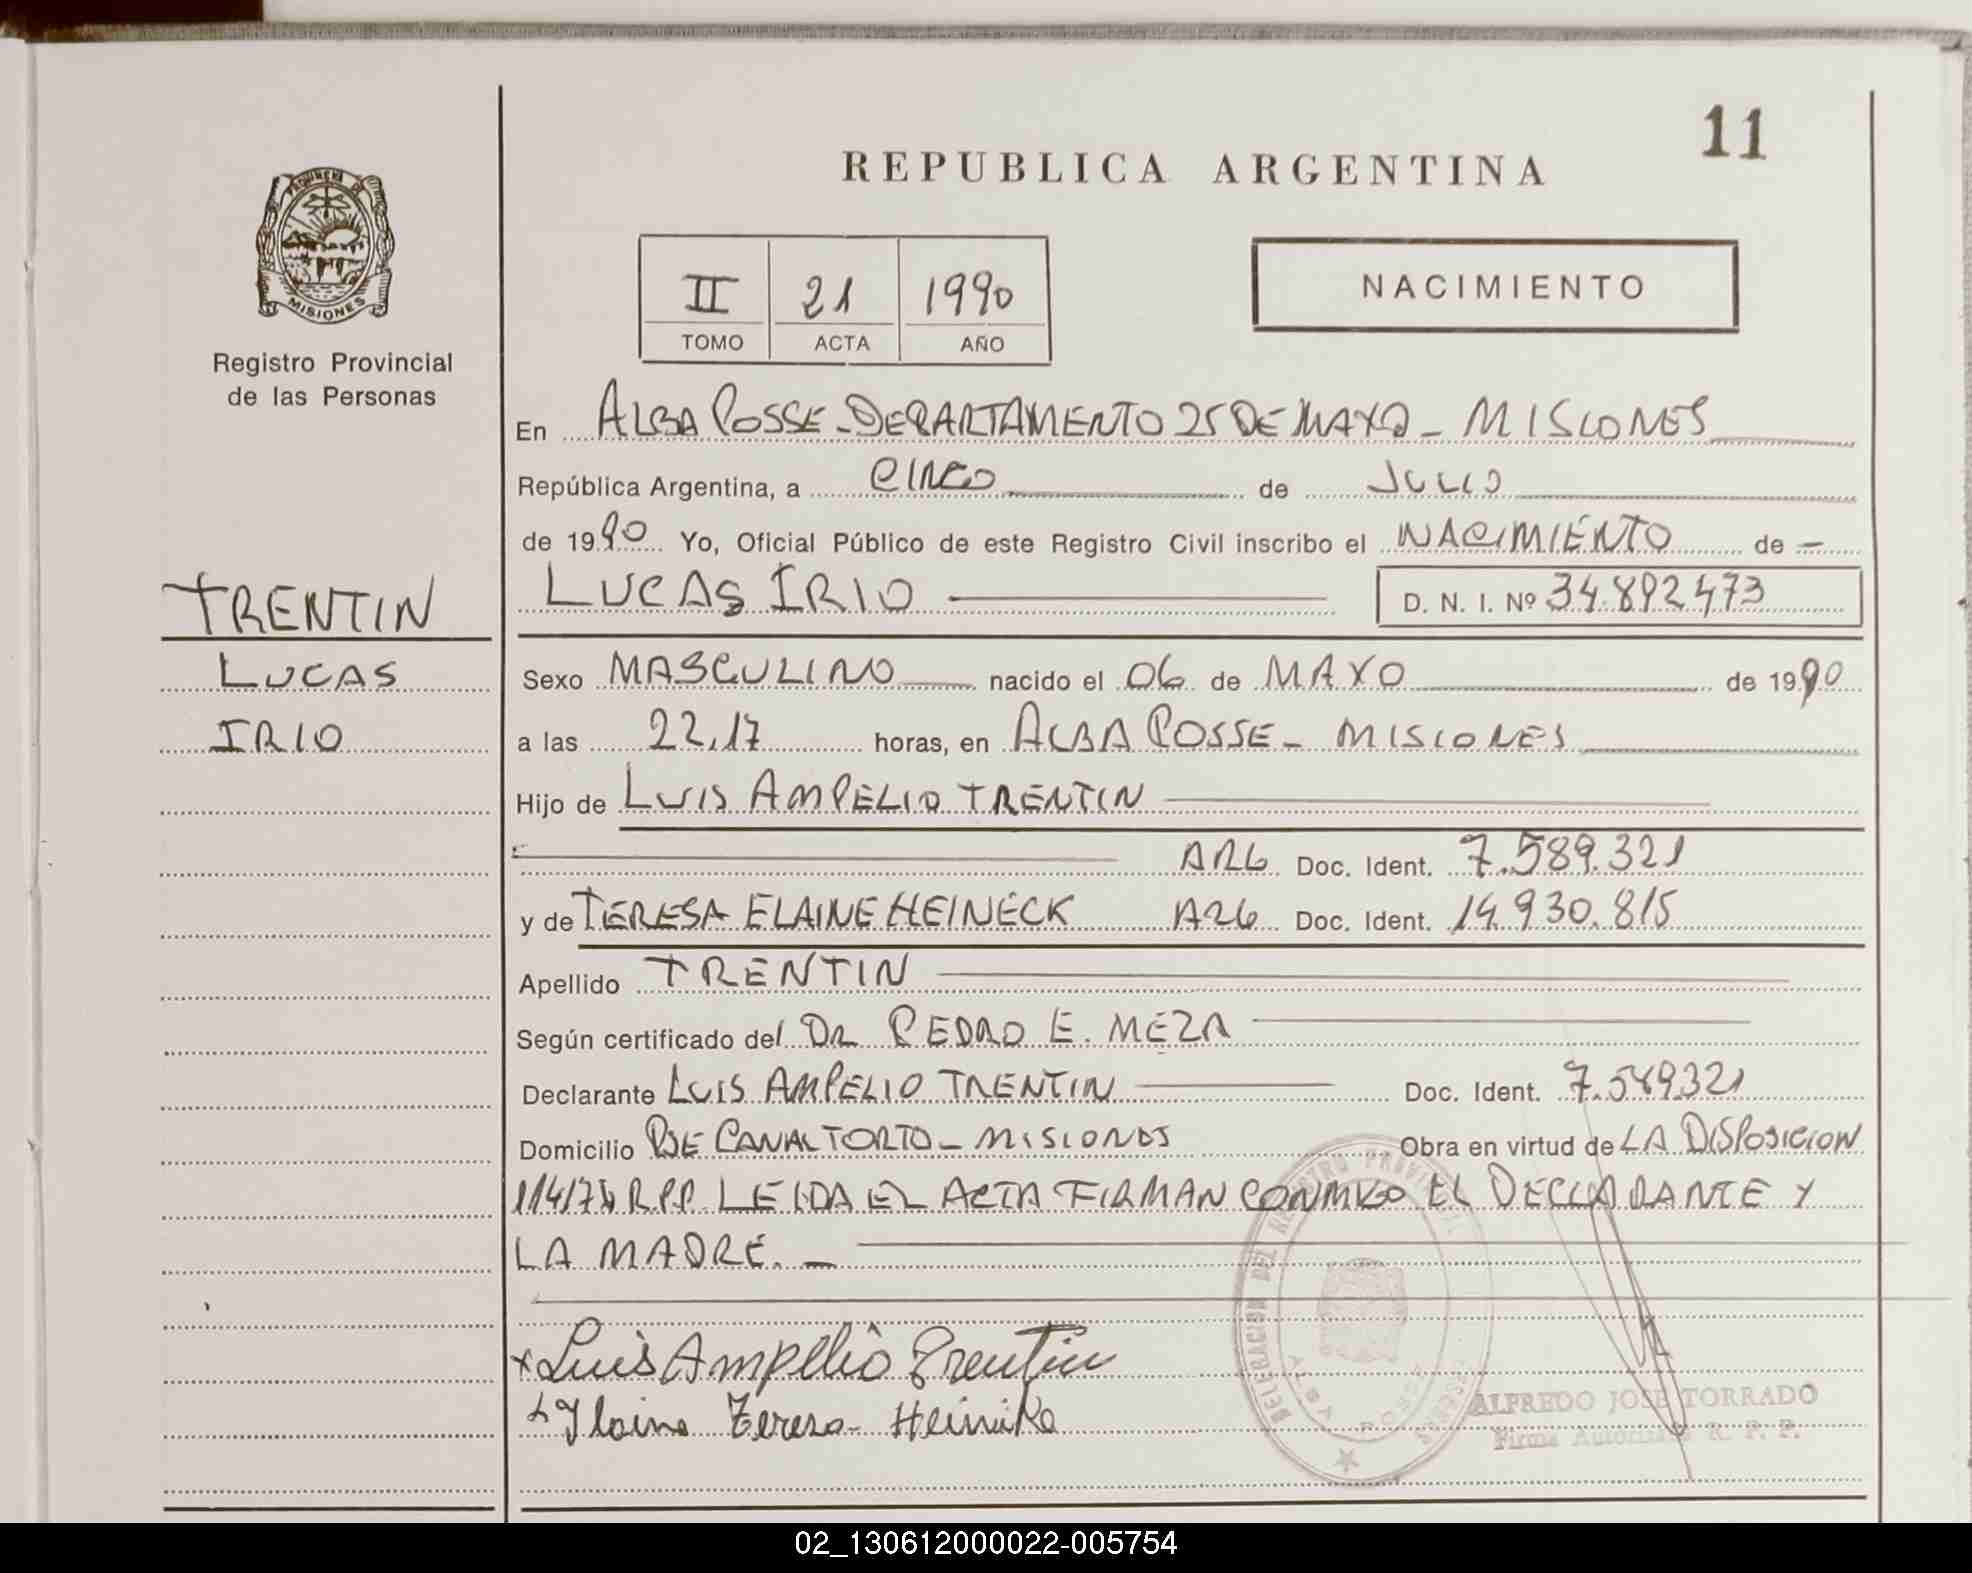 11
REPUBLICA ARGENTINA
PROVINCIA DE
MISIONES
Registro Provincial
de las Personas
II 21 1990
TOMO ACTA AÑO
NACIMIENTO
En ALBA POSSE - DEPARTAMENTO 25 DE MAYO - MISIONES
República Argentina, a CINCO de JULIO
de 1990 Yo, Oficial Público de este Registro Civil inscribo el NACIMIENTO de -
LUCAS IRIO D. N. I. Nº 34.892473
TRENTIN
LUCAS
IRIO
Sexo MASCULINO nacido el 06 de MAYO de 1990
a las 22,17 horas, en ALBA POSSE - MISIONES
Hijo de LUIS AMPELIO TRENTIN
ARG Doc. Ident. 7.589.321
y de TERESA ELAINE HEINECK ARG Doc. Ident. 14.930.815
Apellido TRENTIN
Según certificado del DR PEDRO E. MEZA
Declarante LUIS AMPELIO TRENTIN Doc. Ident. 7.589321
Domicilio PJE CANAL TORTO - MISIONES Obra en virtud de LA DISPOSICION
114/78 R.P.P. LEIDA EL ACTA FIRMAN CONMIGO EL DECLARANTE Y
LA MADRE. -
x Luis Ampelio Trentin
x Ilaine Tereza Heinike
DELEGACION DEL REGISTRO PROVINCIAL
ALBA POSSE
ALFREDO JOSE TORRADO
Firma Autorizada R. P. P.
02_130612000022-005754